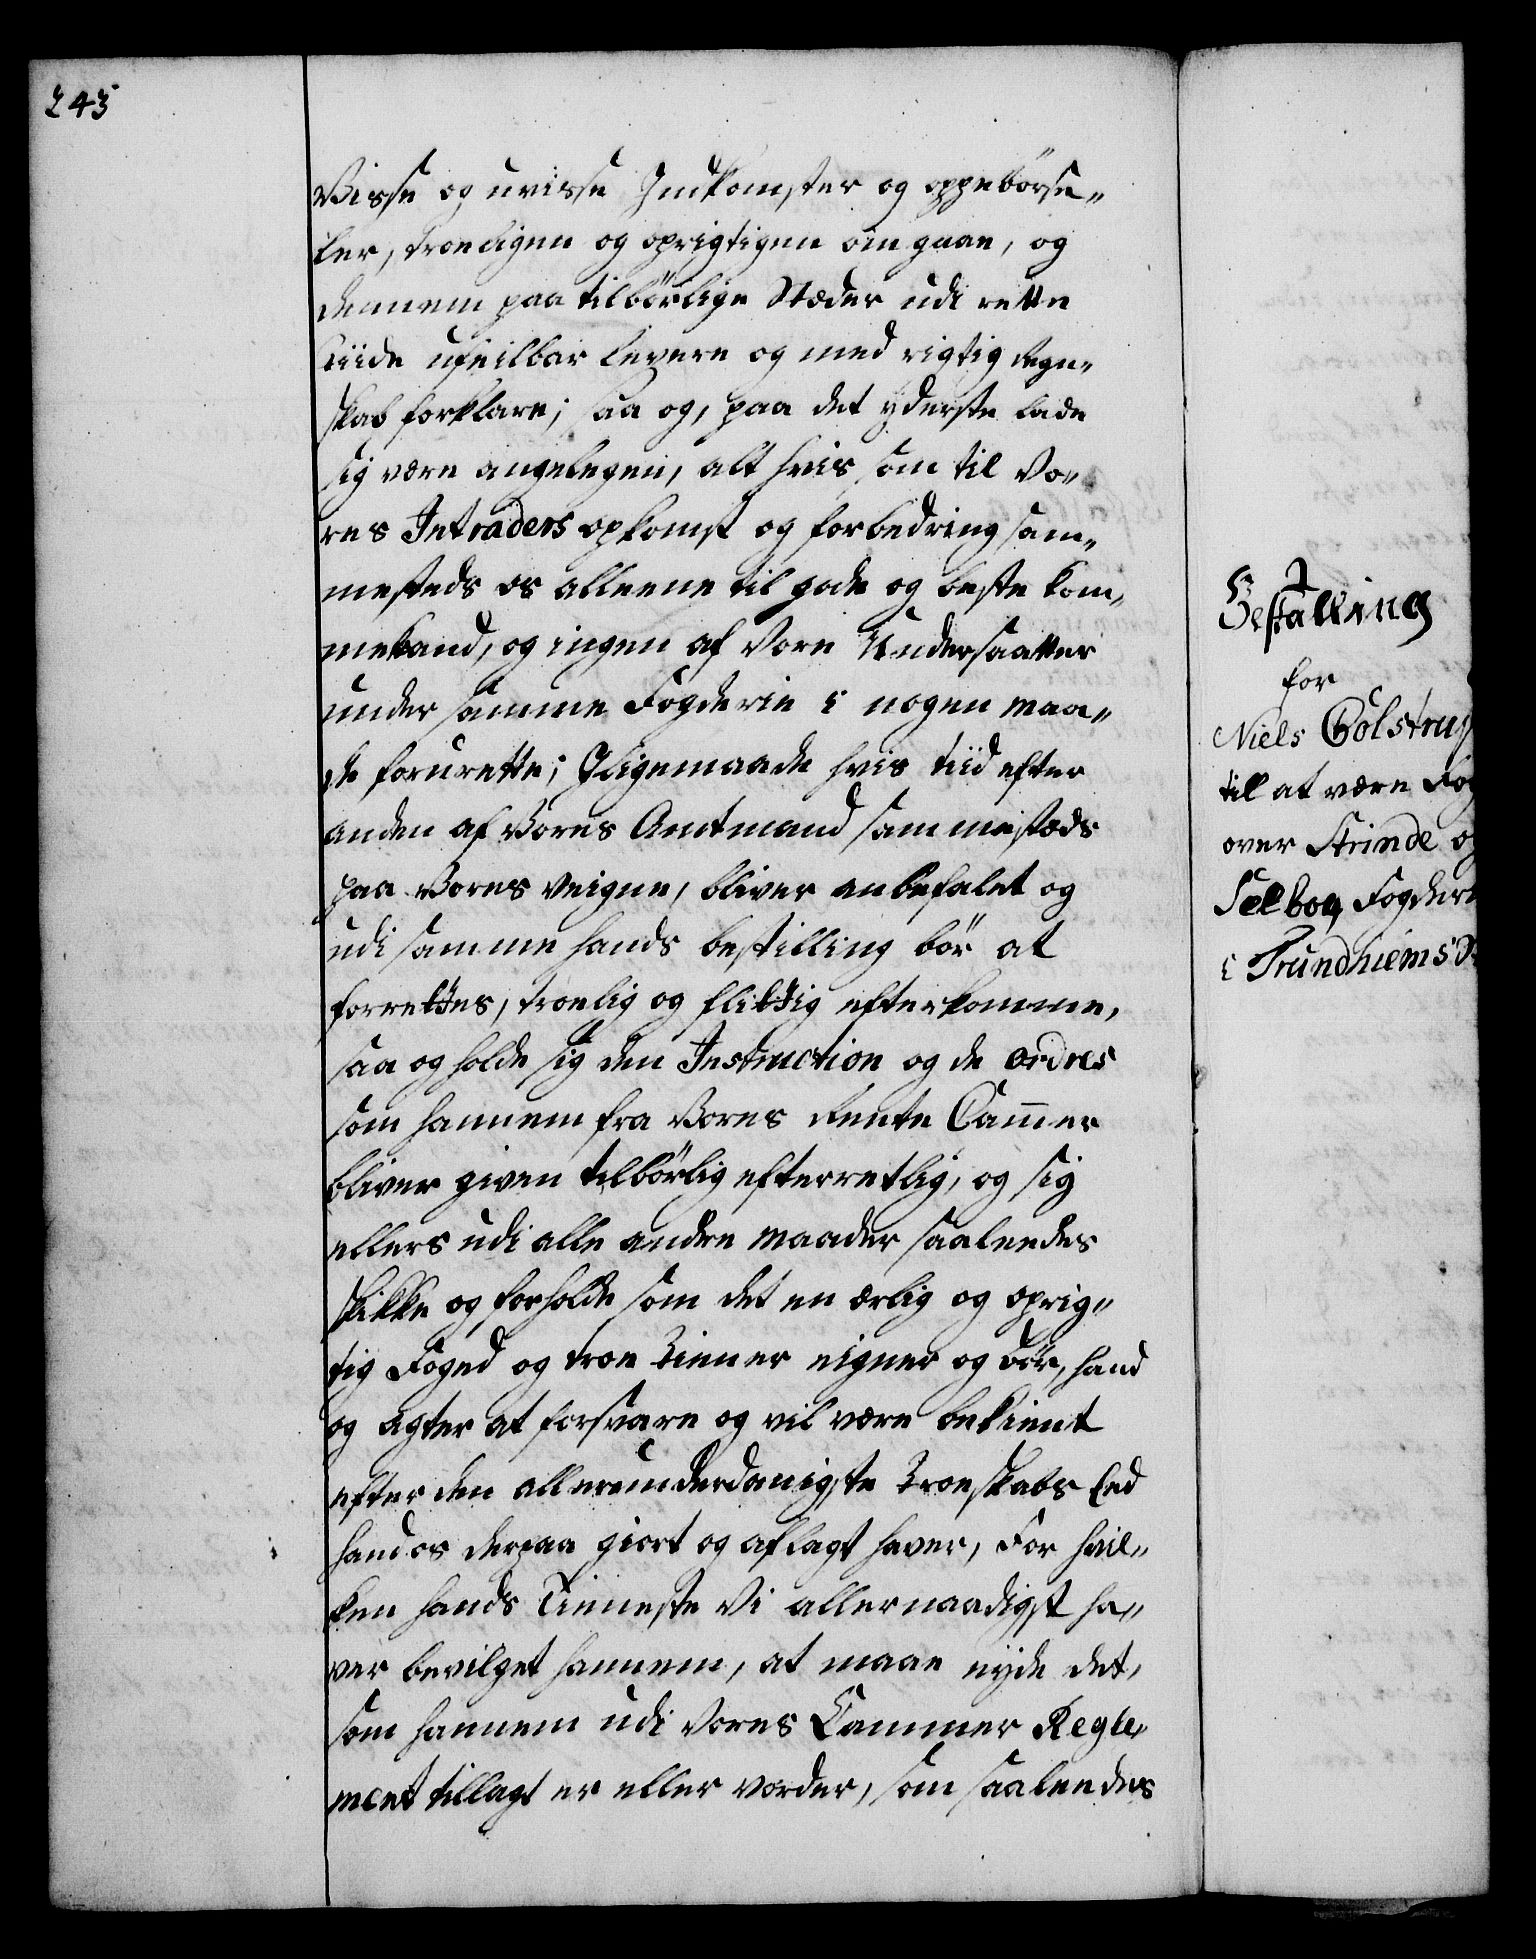 243
Visse og uvisse Indkomster og oppebörse„
ler, troeligen og oprigtigen omgaae, og
dennem paa tilbörlige Stæder udi rette
Tiide ufeilbar levere og med rigtig Regn„
skab forklare; saa og, paa det yderste lade
sig være angelegen, alt hvis som til Vo„
res Intraders opkomst og forbedring sam„
mesteds os alleene til gode og beste kom„
me kand, og ingen af Vore Undersaatter
under samme Fogderie i nogen maa„
de forurette; Iligemaade hvis tiid efter
anden af Vores Amtmand sammestæds
paa Vores veigne, bliver anbefalet og
udi samme hands bestilling bör at
forrettes, troelig og flittig efterkomme,
saa og holde sig den Instruction og de ordres
som hannem fra Vores Rente Cam̄er
bliver given tilbörlig efterretlig, og sig
ellers udi alle andre maader saaleedes
skikke og forholde som det en ærlig og oprig„
tig Foged og troe Tiener eigner og bör, hand
og agter at forsvare og vil være bekient
efter den allerunderdanigste Troeskabs Eed
hand os derpaa giort og aflagt haver, For hvil„
ken hands Tieneste Vi allernaadigst ha„
ver bevilget hannem, at maae nyde det,
som hannem udi Vores Cammer Regle„
ment tillagt er eller vorder, som saaleedes
Bestalling
for
Niels Collstrup
till at være Fog
over Strinde og
Selboe Fogderi
i Trundhiems St